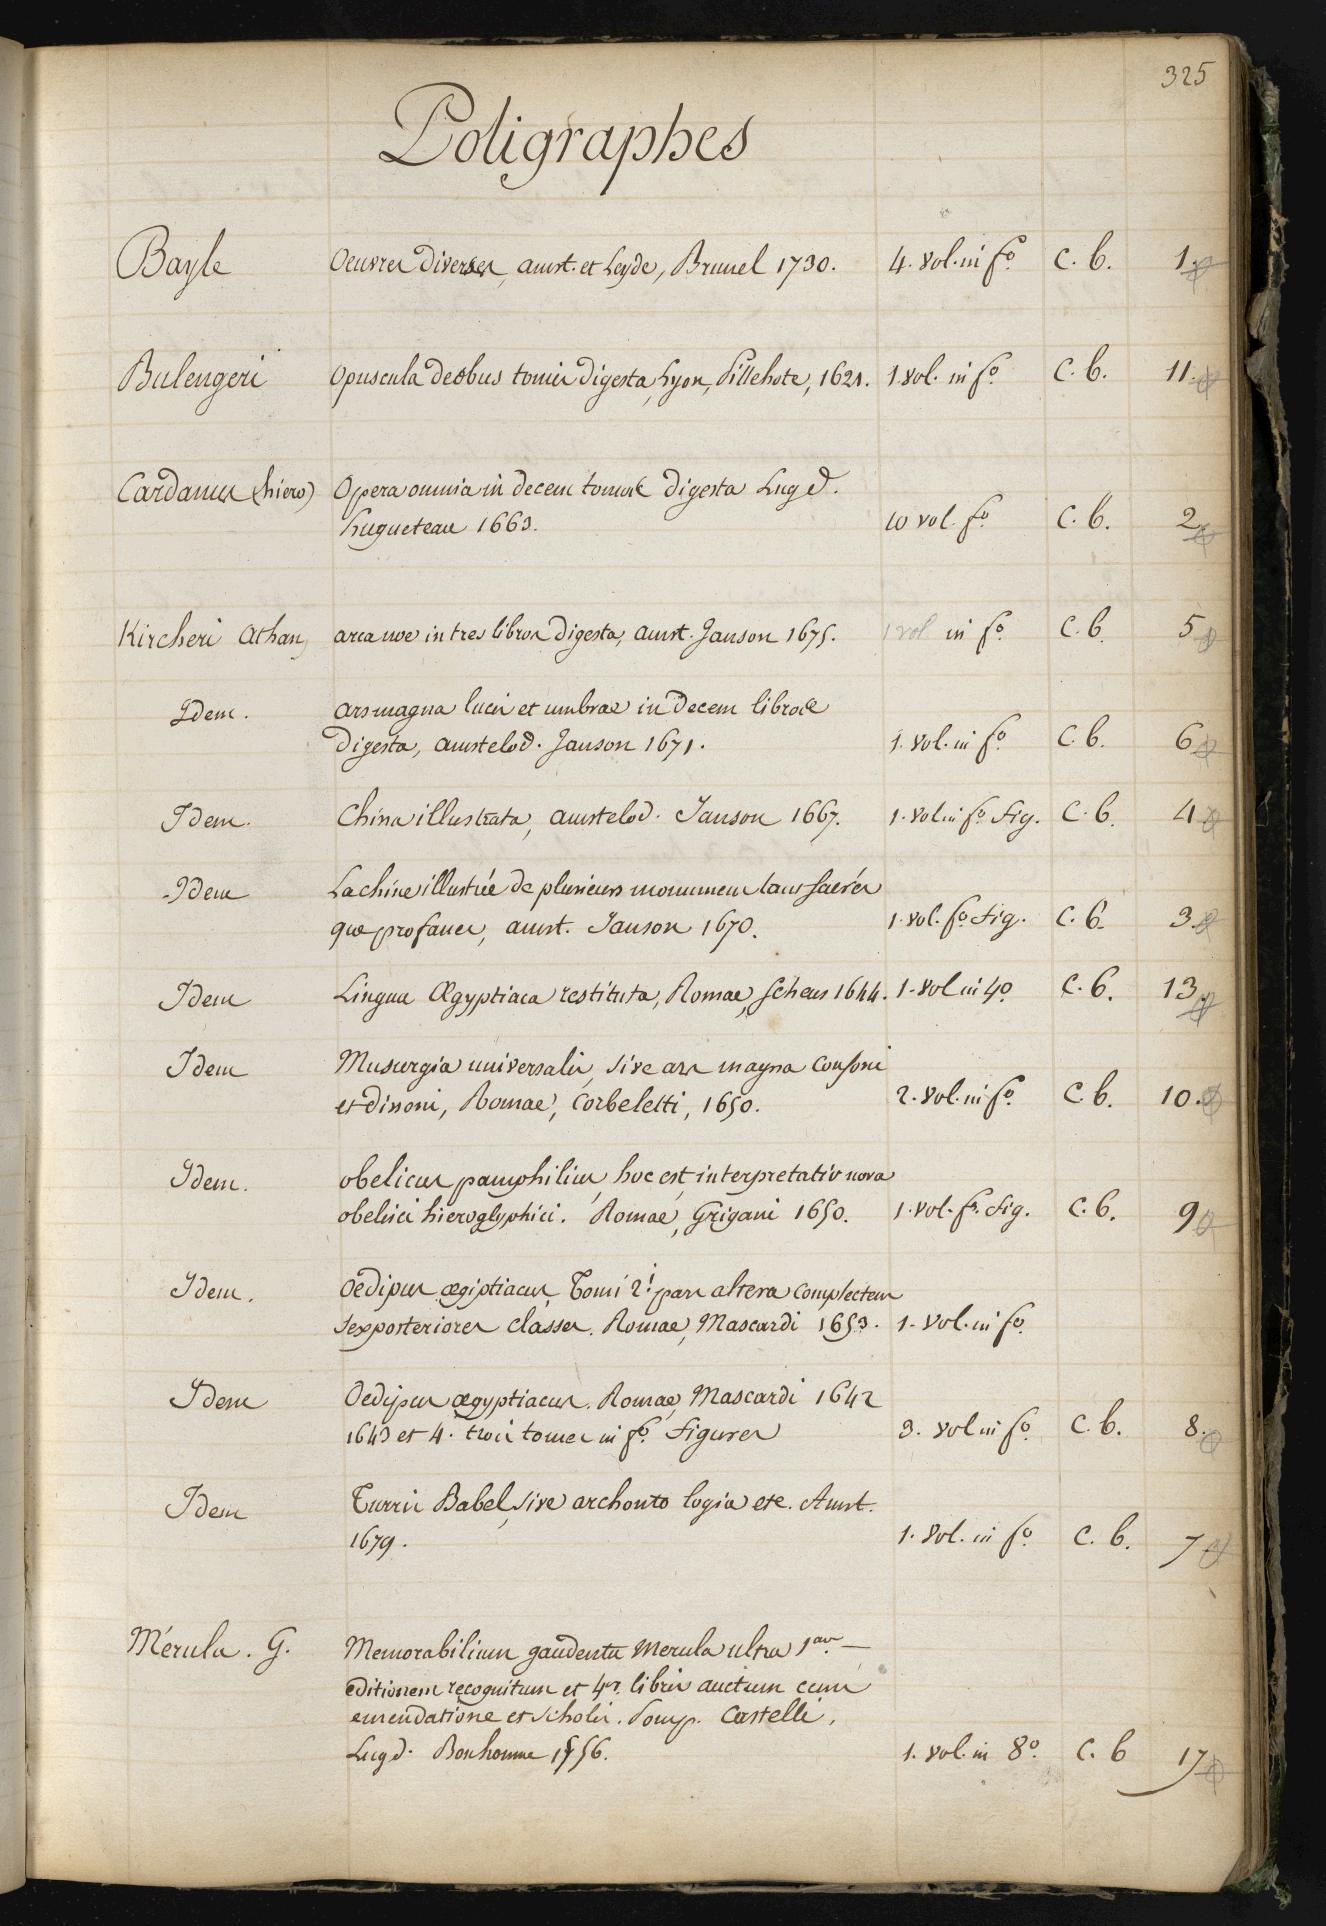 325
Poligraphes
Bayle Oeuvres diverses, amst. et Leyde, Brunel 1730. 4. vol. in fo. C. b. 1.
Bulengeri Opuscula deobus tomis digesta, Lyon, Pillehote, 1621. 1 vol. in fo. C. b. 11.
Cardanus (hiero) Opera omnia in decem tomos digesta Lugd.
hugueteau 1663. 10 vol. fo. C. b. 2.
Kircheri athan, arca noe in tres libros digesta, amst. Janson 1675. 1 vol in fo. C. b. 5
Idem. ars magna lucis et umbrae in decem libros
digesta, amstelod. Janson 1671. 1. vol. in fo. C. b. 6
Idem. China illustrata, amstelod. Janson 1667. 1. vol in fo. fig. C. b. 4
Idem La chine illustrée de plusieurs monumens tant sacrés
que profanes, amst. Janson 1670. 1. vol. fo. fig. C. b. 3.
Idem Lingua Ægyptiaca restituta, Romae, Scheus 1644. 1. vol in 4o C. b. 13.
Idem Musurgia universalis, sive ars magna consoni
et dissoni, Romae, Corbeletti, 1650. 2. vol. in fo. C. b. 10.
Idem. obelicus pamphilius, hoc est, interpretatio nova
obelisci hieroglyphici. Romae, Grigani 1650. 1. vol. fo. fig. C. b. 9
Idem. Oedipus ægiptiacus, Tomi 2i. pars altera complectens
sex posteriores classes. Romae, Mascardi 1653. 1. vol. in fo.
Idem Oedipus ægyptiacus. Romae, Mascardi 1642
1643 et 4. trois tomes in fo. figures 3. vol in fo. C. b. 8.
Idem Turris Babel, sive archonto logia etc. Amst.
1679. 1. vol. in fo. C. b. 7
Mérula. G. Memorabilium gaudentii Merula ultra 1am.
editionem recognitum et 4or. libris auctum cum
emendatione et scholis. Pomp. Castelli,
Lugd. Bonhomme 1556. 1. vol. in 8o. C. b 17